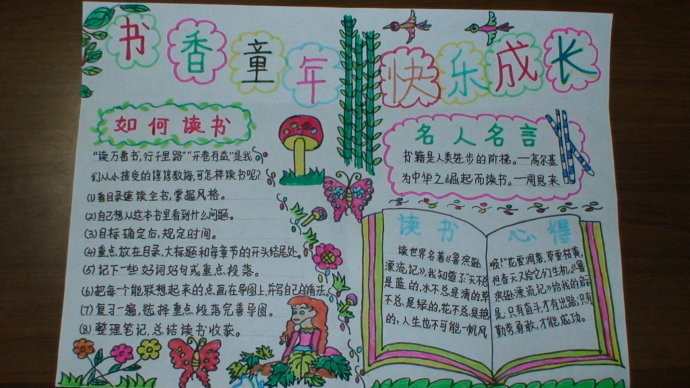 书香童年
快乐成长
如何读书
“读万卷书,行千里路”“开卷有益”是我
们从小接受的谆谆教诲,可怎样读书呢?
(1)看目录速读全书,掌握风格。
(2)自己想从这本书里看到什么问题。
(3)目标确定后,规定时间。
(4)重点,放在目录、大标题和每章节的开头结尾处。
(5)记下一些好词好句或重点段落。
(6)把每一个能联想起来的点画在导图上,并写自己的看法。
(7)复习一遍,选择重点段落完善导图。
(8)整理笔记,总结读书收获。
名人名言
书籍是人类进步的阶梯。—高尔基
为中华之崛起而读书。—周恩来
读书
读世界名著《鲁宾逊
漂流记》,我知道了:天不总
是蓝的,水不总是清的,草
不总是绿的,花不总是艳
的,人生也不可能一帆风
心得
顺!花谢凋零,草重枯黄,
但春天又给它们生机。《鲁
宾逊漂流记》给我的启
是,只有奋斗,才有出路;只有
勤奋勇敢,才能成功。